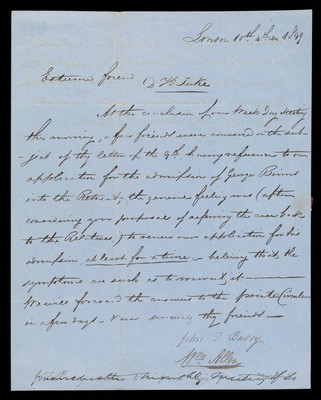 London 10th 4th mo 1849
Esteemed friend
D H Tuke
At the conclusion of our Week Day Meeting
this morning, a few friends were convened on the sub-
ject of thy letter of the 9th, having reference to our
application for the admission of George Binns
into the Retreat, the general feeling was (after
considering your proposal of referring the case back
to the Relatives) to renew our application for his
admission, at least for a time – believing that the
symptoms are such as to warrant it –
We will forward the answers to the printed Circular
in a few days – We are sincerely thy friends –
John T Barry
Wm Allen
Monthly Meeting of